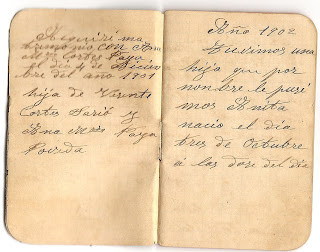 Adquirí ma
trimonio con Ana
Mª Cortes Paya
el dia 4 de Diciem
bre del año 1901
hija de Vicente
Cortes Sarió y
Ana María Paya
Poveda
Año 1902
Tuvimos una
hija que por
nombre le pusi
mos Anita
nacio el dia
tres de Octubre
á las doce del dia